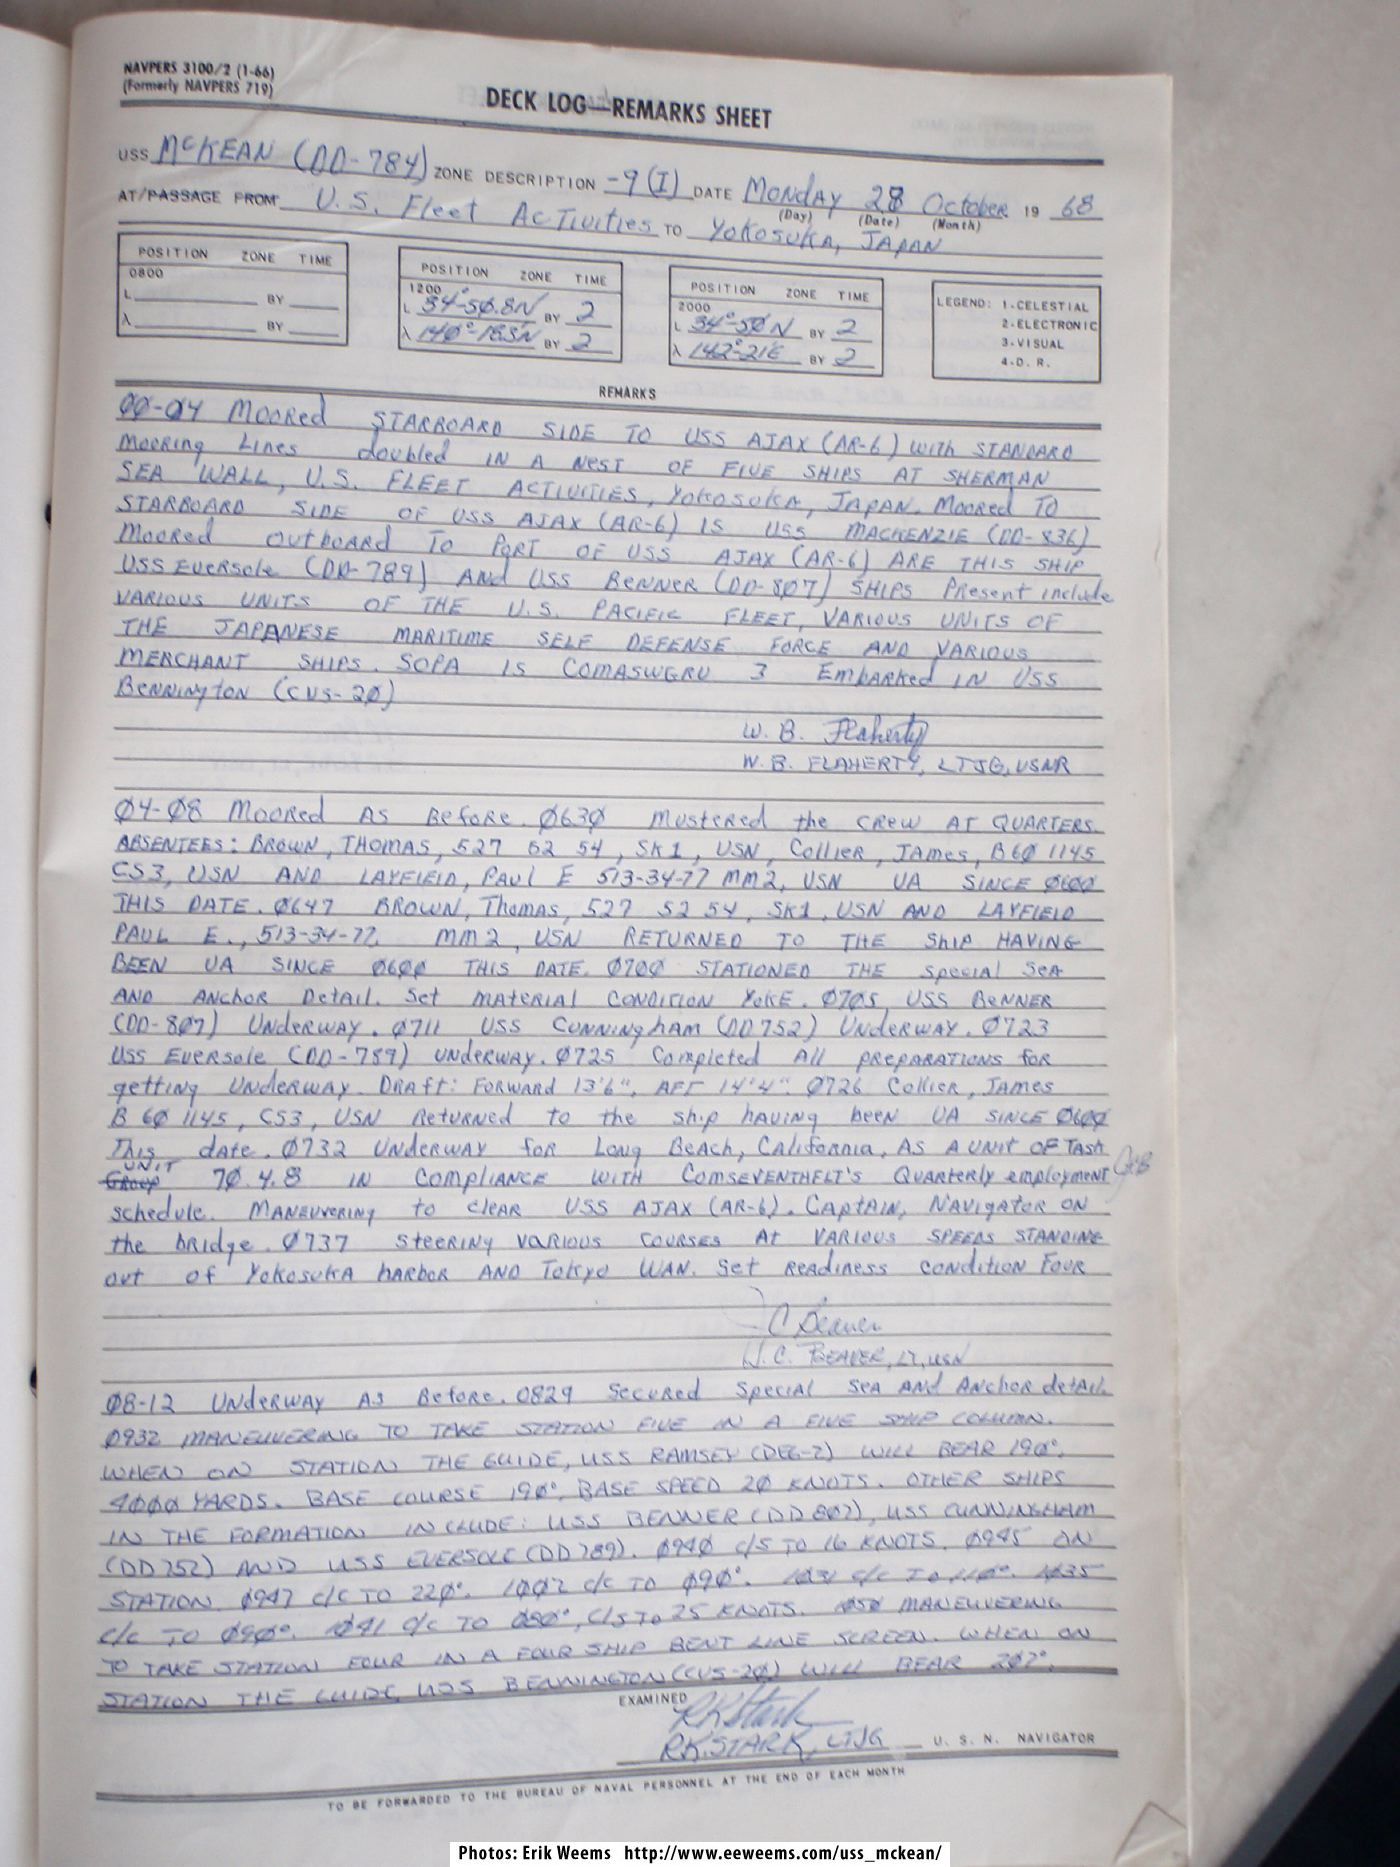 NAVPERS 3100/2 (1-66)
(Formerly NAVPERS 719)
DECK LOG—REMARKS SHEET
USS McKEAN (DD-784) ZONE DESCRIPTION -9(I) DATE Monday 28 October 19 68
(Day) (Date) (Month)
AT/PASSAGE FROM U.S. Fleet Activities TO Yokosuka, JAPAN
POSITION ZONE TIME
0800
L BY
λ BY
POSITION ZONE TIME
1200
L 34°-50.8N BY 2
λ 140°-18.5N BY 2
POSITION ZONE TIME
2000
L 34°-50N BY 2
λ 142°-21E BY 2
LEGEND: 1-CELESTIAL
2-ELECTRONIC
3-VISUAL
4-D. R.
REMARKS
00-04 Moored STARBOARD SIDE TO USS AJAX (AR-6) with STANDARD
Mooring Lines doubled IN A NEST OF FIVE SHIPS AT SHERMAN
SEA WALL, U.S. FLEET ACTIVITIES, Yokosuka, JAPAN. Moored TO
STARBOARD SIDE OF USS AJAX (AR-6) IS USS MACKENZIE (DD-836)
Moored OutboARD To PORT OF USS AJAX (AR-6) ARE THIS SHIP
USS Eversole (DD-789) AND USS BENNER (DD-807) SHIPS Present include
VARIOUS UNITS OF THE U.S. PACIFIC FLEET, VARIOUS UNITS OF
THE JAPANESE MARITIME SELF DEFENSE FORCE AND VARIOUS
MERCHANT SHIPS. SOPA IS COMASWGRU 3 EmbARKed IN USS
BENNINgTON (CVS-20)
W. B. Flaherty
W. B. FLAHERTY, LTJG, USNR
04-08 Moored AS Before. 0630 Mustered the CREW AT QUARTERS.
ABSENTEES: BROWN, THOMAS, 527 52 54, SK1, USN, Collier, JAmes, B60 1145
CS3, USN AND LAYFIELD, PAUL E 513-34-77 MM2, USN UA SINCE 0600
THIS DATE. 0647 BROWN, Thomas, 527 52 54, SK1, USN AND LAYFIELD
PAUL E., 513-34-77, MM2, USN RETURNED TO THE SHIP HAVING
BEEN UA SINCE 0600 THIS DATE. 0700 STATIONED THE Special SeA
AND ANchor Detail. Set MATERIAL CONDITION YOKE. 0705 USS BENNER
(DD-807) UNDERWAY. 0711 USS CUNNINgHAM (DD 752) UNDERWAY. 0723
USS Eversole (DD-789) UNDERWAY. 0725 Completed All PREPARATIONS for
getting UNDERWAY. DRAft: FORWARD 13'6", AFT 14'4". 0726 Collier, JAmes
B 60 1145, CS3, USN Returned to the ship having been UA SINCE 0600
This date. 0732 UNDERWAY for Long BEACH, CALIfornia, AS A UNIT OF TASK
UNIT
Group 70.4.8 IN COMPLIANCE WITH COMSEVENTHFLT'S QUARTERly employmeNT
schedule. MANEUVERING to clear USS AJAX (AR-6). CAPTAIN, NAVIgAtoR ON
the bridge. 0737 Steering VARIOUS COURSES At VARIOUS SPEEDS STANDING
out of YokosukA hARboR AND Tokyo WAN. Set READINESS CONDITION FOUR
C Beaver
J. C. BEAVER, LT, USN
08-12 UNDERWAY AS BEFORE. 0829 Secured Special SeA AND ANchor detAil.
0932 MANEUVERING TO TAKE STATION FIVE IN A FIVE SHIP COLUMN.
WHEN ON STATION THE GUIDE, USS RAMSEY (DEG-2) WILL BEAR 190°,
4000 YARDS. BASE COURSE 190°, BASE SPEED 20 KNOTS. OTHER SHIPS
IN THE FORMATION INCLUDE: USS BENNER (DD 807), USS CUNNINGHAM
(DD 752) AND USS EVERSOLE (DD 789). 0940 C/S TO 16 KNOTS. 0945 ON
STATION. 0947 C/C TO 220°. 1002 C/C TO 090°. 1031 C/C TO 110°. 1035
C/C TO 090°. 1041 C/C TO 050°, C/S TO 25 KNOTS. 1050 MANEUVERING
TO TAKE STATION FOUR IN A FOUR SHIP BENT LINE SCREEN. WHEN ON
STATION THE GUIDE USS BENNINGTON (CVS-20) WILL BEAR 207°,
EXAMINED
RK Stark
RK. STARK, LTJG U. S. N. NAVIGATOR
TO BE FORWARDED TO THE BUREAU OF NAVAL PERSONNEL AT THE END OF EACH MONTH
Photos: Erik Weems http://www.eeweems.com/uss_mckean/